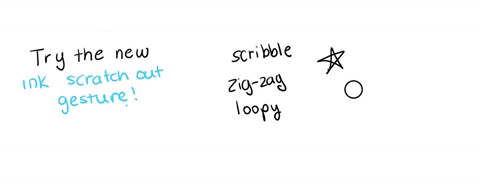 Try the new
ink scratch out
gesture!
scribble
zig-zag
loopy